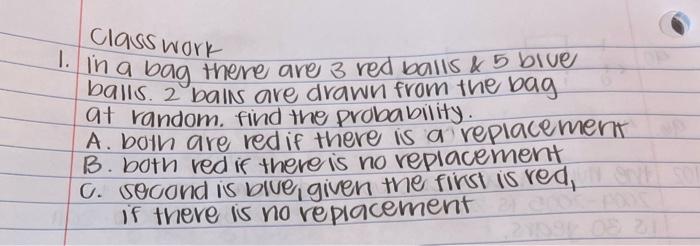 Classwork
1. in a bag there are 3 red balls & 5 blue
balls. 2 balls are drawn from the bag
at random. find the probability.
A. both are red if there is a replacement
B. both red if there is no replacement
C. second is blue, given the first is red,
if there is no replacement